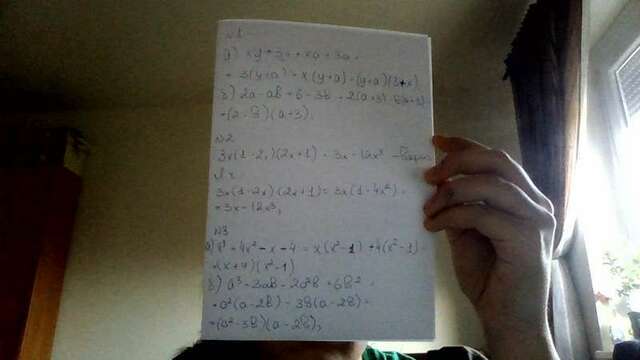 №1
xy + 3y + xa + 3a =
= 3(y+a) + x(y+a) = (y+a)(3+x)
б) 2a - ab + 6 - 3b = 2(a+3) - b(a+3)
= (2-b)(a+3)
№2
3x(1-2x)(2x+1) = 3x - 12x³
3x(1-2x)(2x+1) = 3x(1-4x²) =
= 3x - 12x³;
№3
x³ + 4x² - x - 4 = x(x²-1) + 4(x²-1)
(x+4)(x²-1)
б) a³ - 3ab - 2a²b + 6b² =
= a²(a-2b) - 3b(a-2b) =
= (a²-3b)(a-2b);